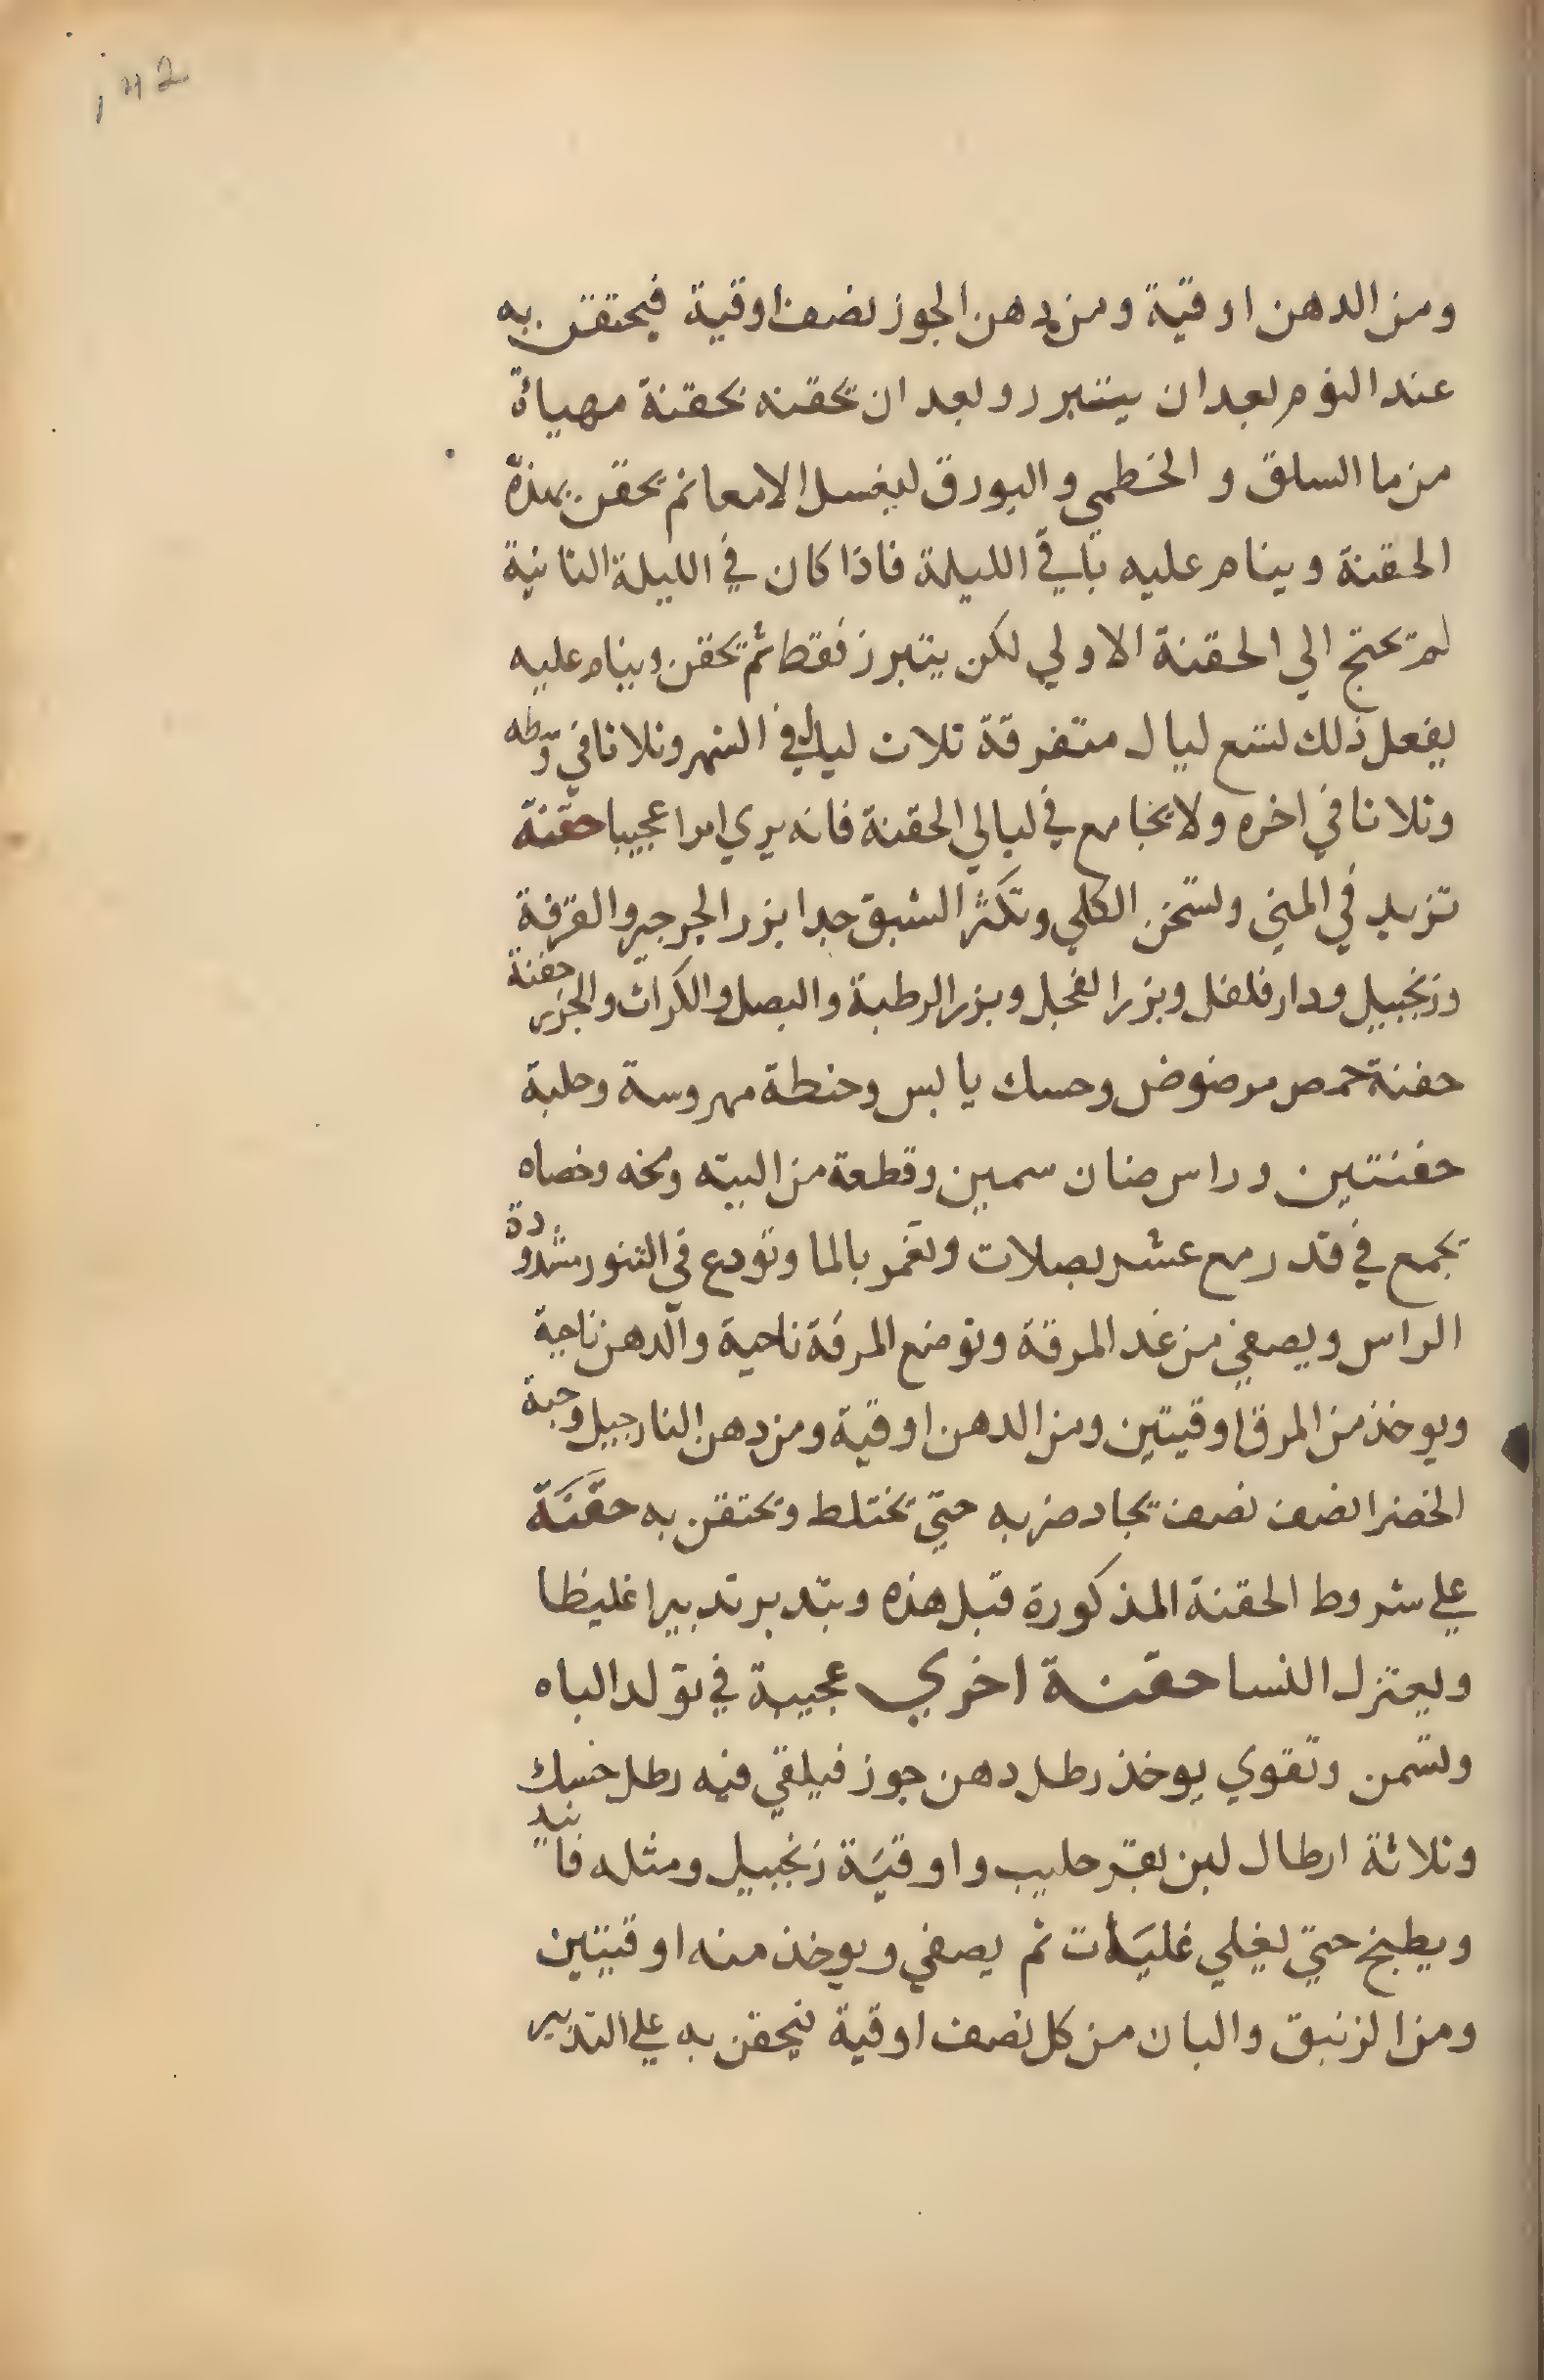 142
ومن الدهن اوقية ومن دهن الجوز نصف اوقية فيحتقن به
عند النوم بعد ان يتبرر وبعد ان تحقنه بحقنة مهياة
من ما السلق و الخطمي و البورق ليغسل الامعا ثم يحقن بهذه
الحقنة وينام عليه باقي الليلة فاذا كان في الليلة الثانية
لم تحتج الي الحقنة الاولي لكن يتبرز فقط ثم تحقن وينام عليه
يفعل ذلك لتسع ليال متفرقة ثلاث ليال في الشهر وثلاثا في وسطه
وثلاثا في اخره ولا يجامع في ليالي الحقنة فانه يري امرا عجيبا حقنة
تزيد في المني وتسخن الكلي وتكثر الشبق جدا بزر الجرجير والقرفة
وزنجبيل ودار فلفل وبزر الفجل وبزر الرطبة والبصل والكراث والجزر حفنة
حفنة حمص مرضوض وحسك يابس وحنطة مهروسة وحلبة
حفنتين وراس ضان سمين وقطعة من اليته ومخه وخصاه
يجمع في قدر مع عشر بصلات وتغمر بالما وتودع في التنور مشدودة
الراس ويصفي من غد المرقة وتوضع المرقة ناحية والدهن ناحية
ويوخذ من المرق اوقيتين ومن الدهن اوقية ومن دهن النارجيل وحبة
الخضرا نصف نصف يجاد ضربه حتي يختلط ويحتقن به حقنة
علي شروط الحقنة المذكورة قبل هذه ويتدبر تدبيرا غليظا
ويعتزل النسا حقنة اخري عجيبة في تولد الباه
وتسمن وتقوي يوخذ رطل دهن جوز فيلقي فيه رطل حسك
وثلاثة ارطال لبن بقر حليب واوقية زنجبيل ومثله فانيد
ويطبخ حتي يغلي غليات ثم يصفي ويوخذ منه اوقيتين
ومن الزنبق والبان من كل نصف اوقية فيحقن به علي التدبير